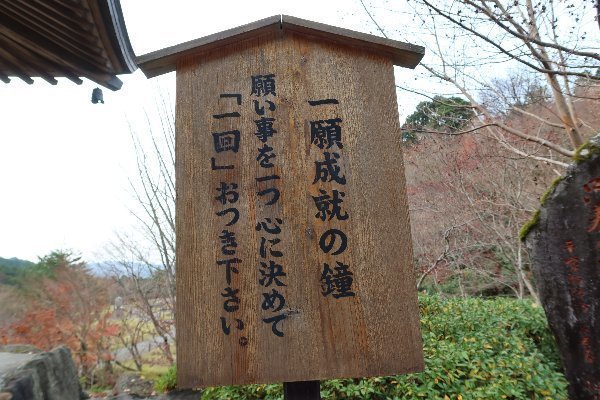 一願成就の鐘
願い事を一つ心に決めて
「一回」おつき下さい。